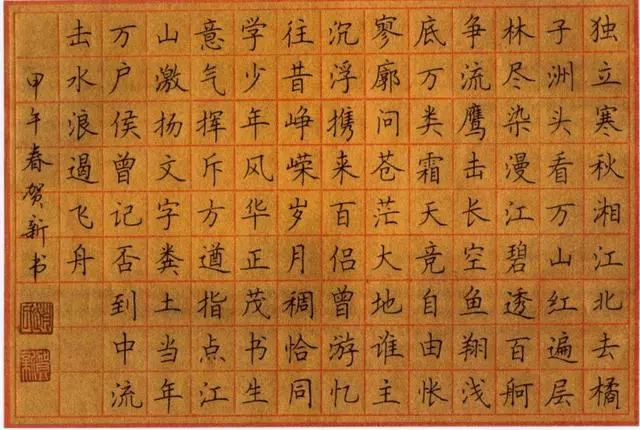 独立寒秋湘江北去橘
子洲头看万山红遍层
林尽染漫江碧透百舸
争流鹰击长空鱼翔浅
底万类霜天竞自由怅
寥廓问苍茫大地谁主
沉浮携来百侣曾游忆
往昔峥嵘岁月稠恰同
学少年风华正茂书生
意气挥斥方遒指点江
山激扬文字粪土当年
万户侯曾记否到中流
击水浪遏飞舟
甲午春贺新书